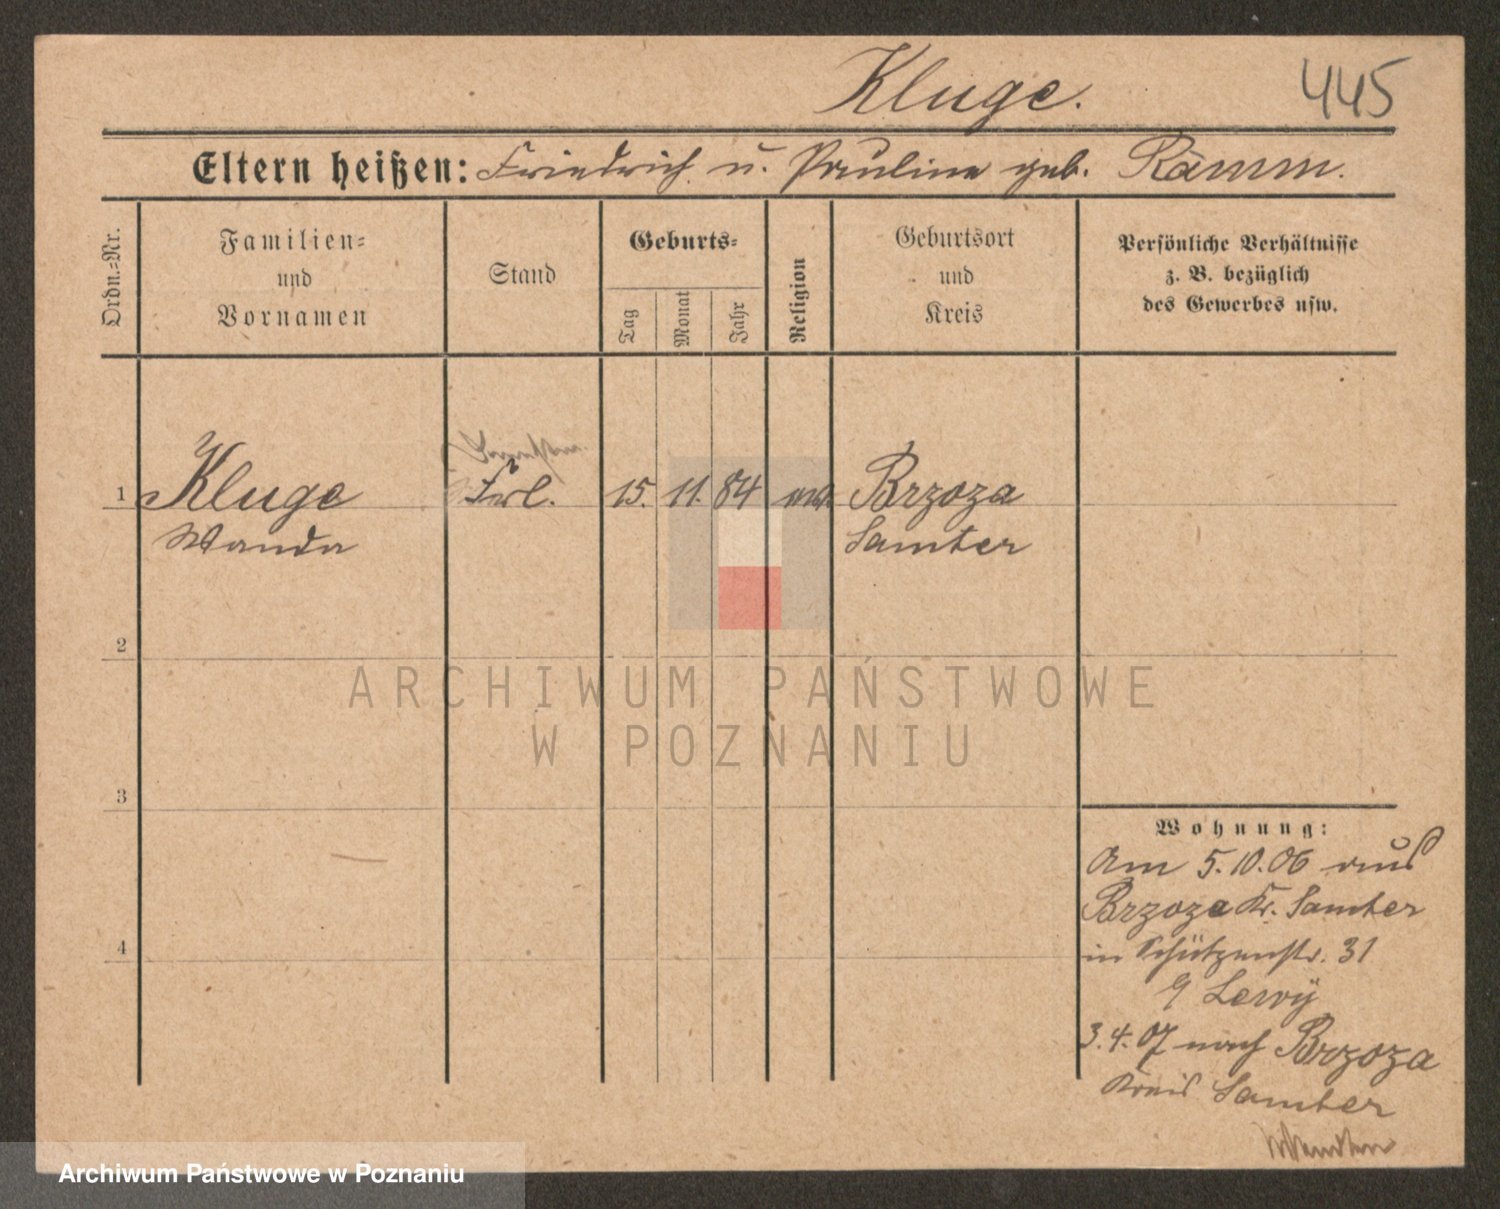 Kluge.
445
Eltern heißen: Friedrich u. Pauline geb. Rämm.
Ordn.-Nr.
Familien-
und
Vornamen
Stand
Geburts-
Tag
Monat
Jahr
Religion
Geburtsort
und
Kreis
Persönliche Verhältnisse
z. B. bezüglich
des Gewerbes usw.
1 Kluge Frl. 15. 11. 84 Brzoza
Wanda Samter
2
3
4
ARCHIWUM PAŃSTWOWE
W POZNANIU
Wohnung:
Am 5.10.06 aus
Brzoza Kr. Samter
in Schützenstr. 31
Lewÿ
3.4.07 nach Brzoza
Kreis Samter
Wenden
Archiwum Państwowe w Poznaniu